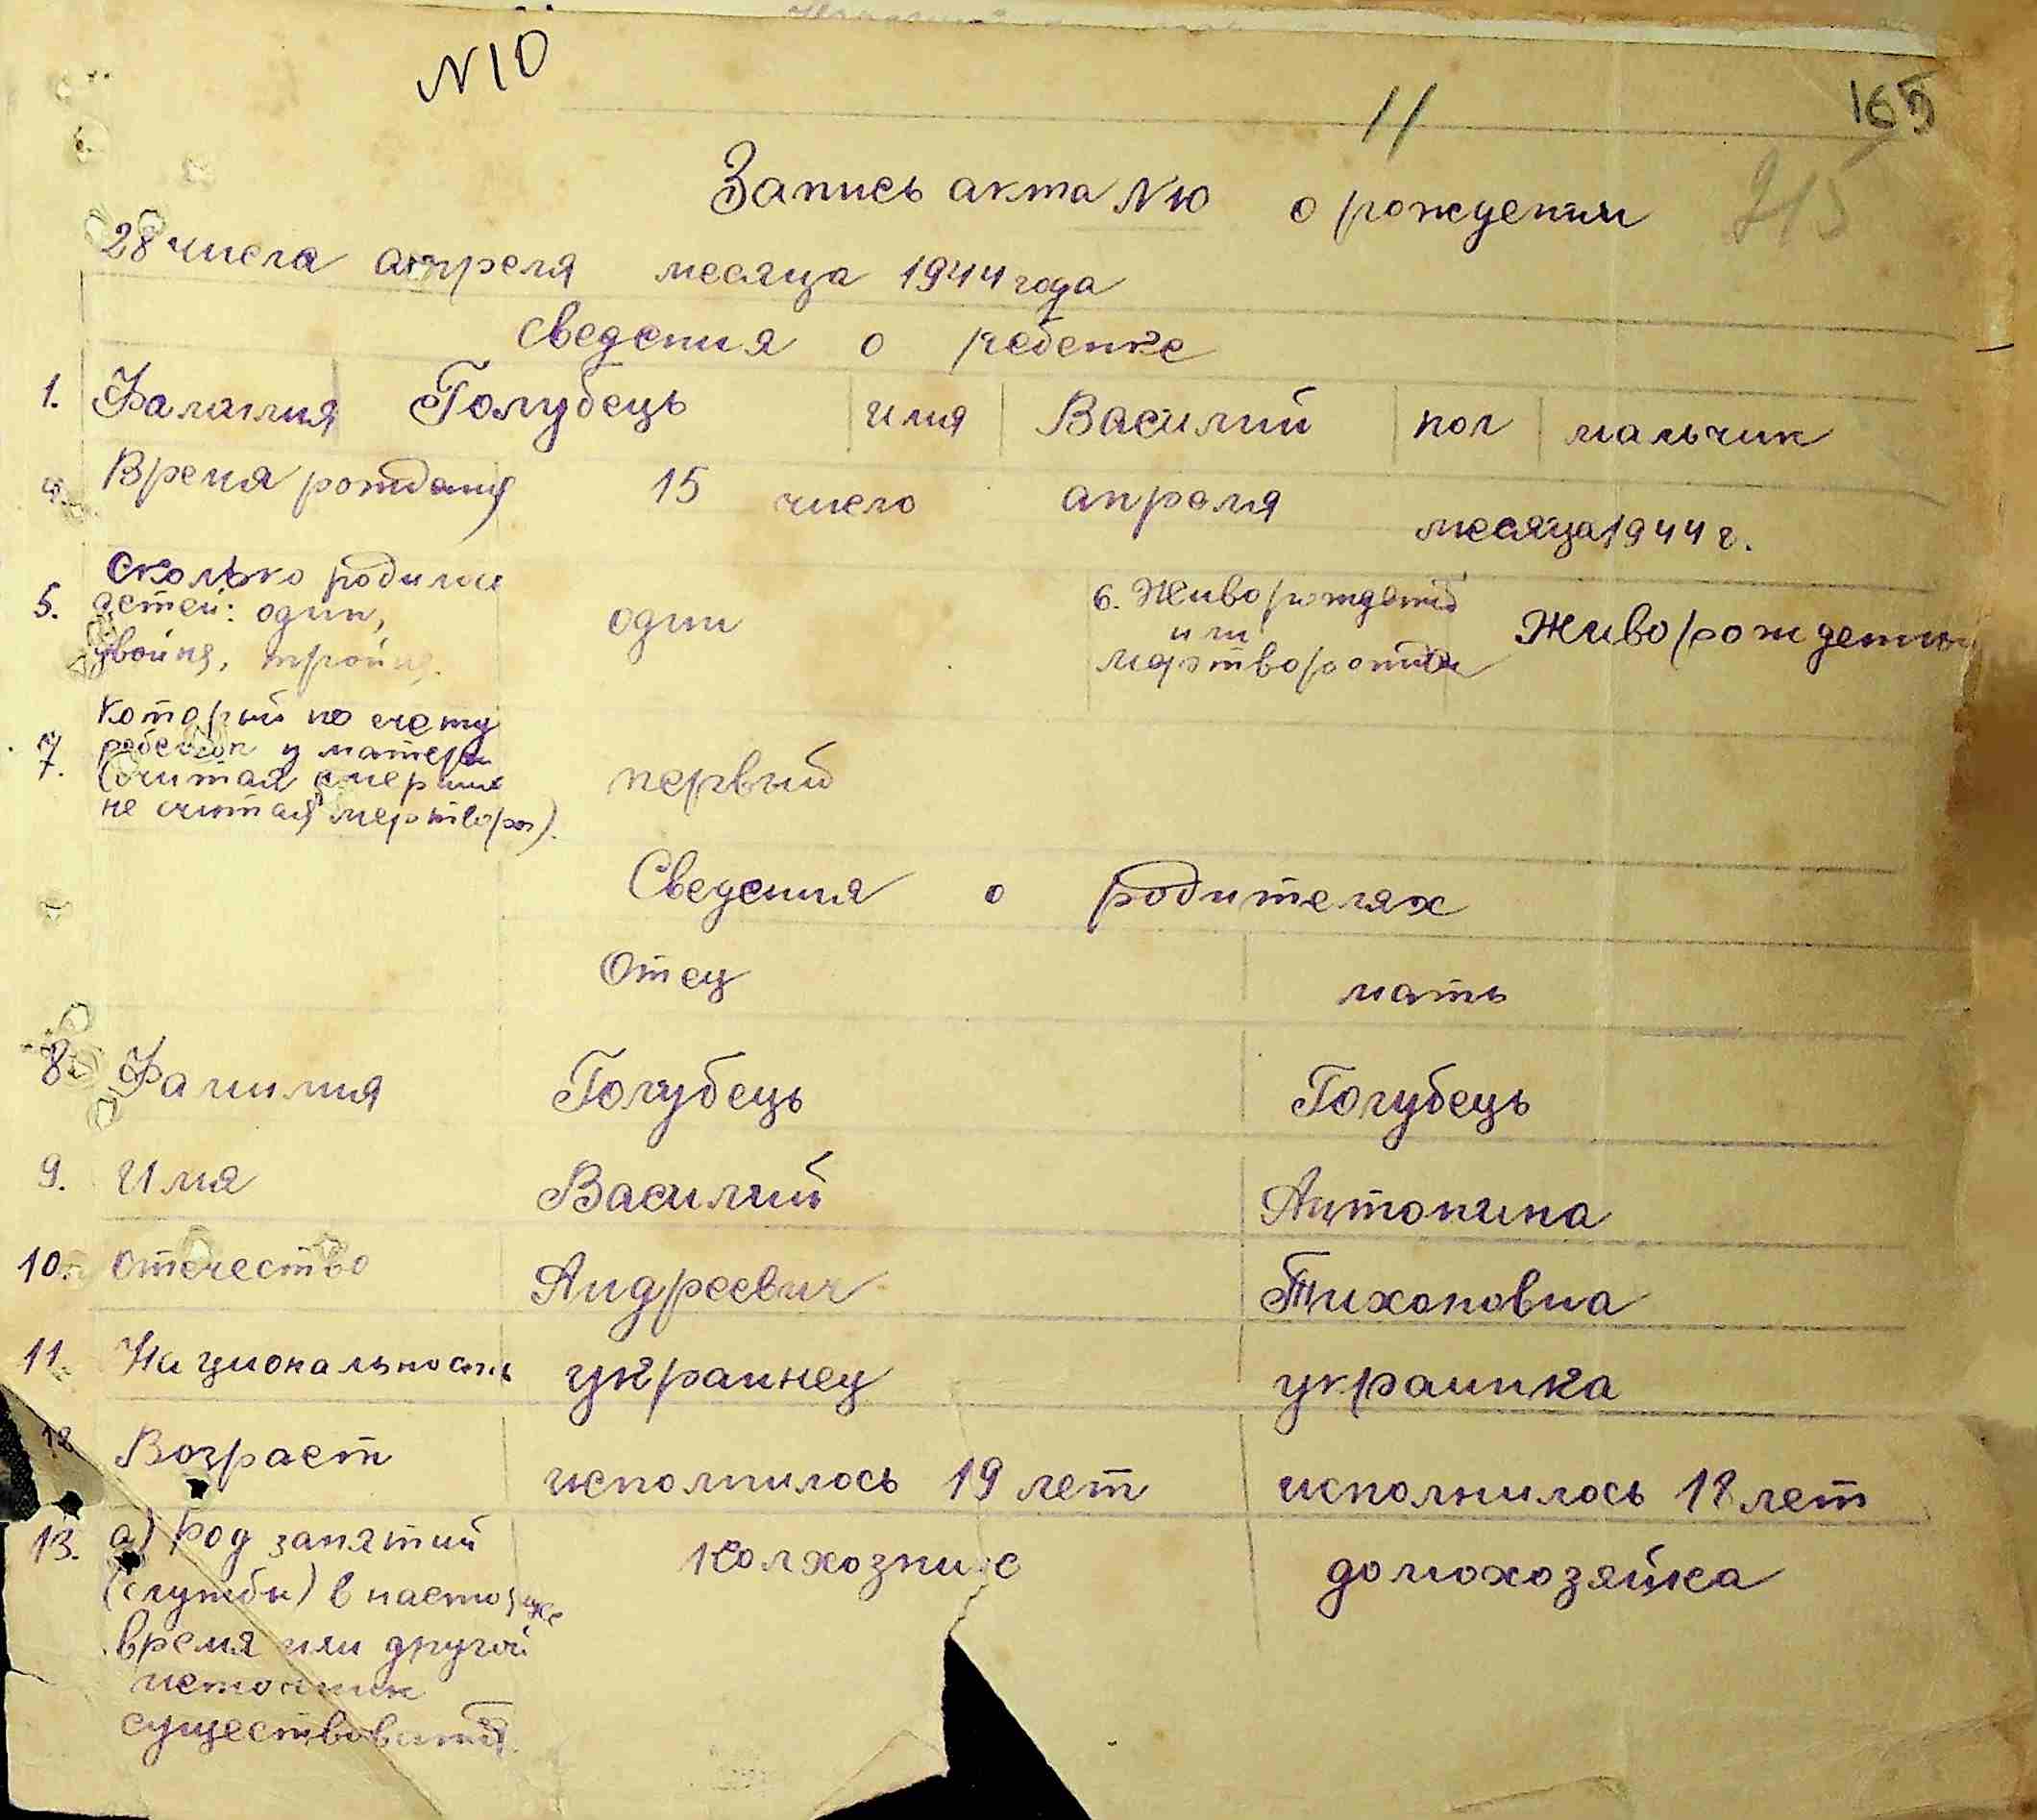 N10
11
165
215
Запись акта N10 о рождении
28 числа апреля месяца 1944 года
сведения о ребенке
1. Фамилия Голубець имя Василий пол мальчик
4. Время рождения 15 число апреля месяца 1944 г.
5. Сколько родилось
детей: один,
двойня, тройня.
один
6. Живорожденый
или
мертворожден
Живорожденный
7. Который по счету
ребенок у матери
(считая умерших
не считая мертворож).
первый
Сведения о родителях
Отец мать
8. Фамилия Голубець Голубець
9. Имя Василий Антонина
10. Отечество Андреевич Тихоновна
11. Национальность украинец украинка
12 Возраст исполнилось 19 лет исполнилось 18 лет
13. а) Род занятий колхозник домохозяйка
(службы) в настоящее
время или другой
источник
существования.